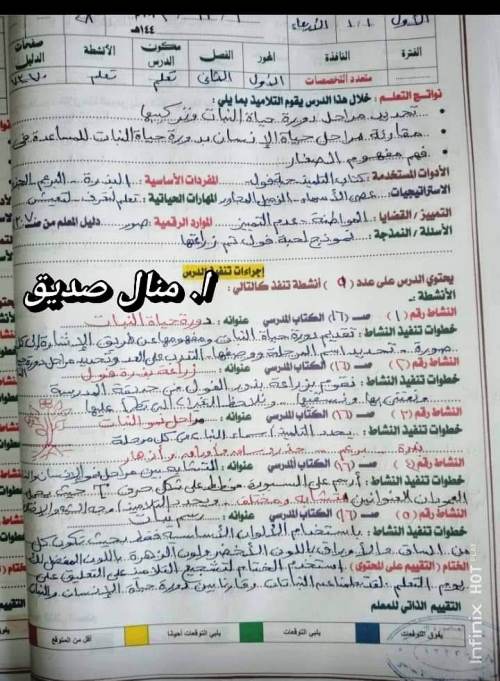 الأول ١/١ الأربعاء ١٤٤هـ ٢٨
الفترة النافذة المحور الفصل مكون الدرس الأنشطة صفحات الدليل
متعدد التخصصات الأول الثاني تعلم تعلم
نواتج التعلم : خلال هذا الدرس يقوم التلاميذ بما يلي :
تحديد مراحل دورة حياة النبات وتركيبها
مقارنة مراحل حياة الإنسان بدورة حياة النبات للمساعدة في
فهم مفهوم الصغار
الأدوات المستخدمة : كتاب التلميذ - حبة فول المفردات الأساسية : البذرة - البرعم - الجذر
الاستراتيجيات : عصى الأسماء - الزميل المجاور المهارات الحياتية : تعلم لتعرف
التمييز / القضايا : المواطنة - عدم التمييز الموارد الرقمية : صور دليل المعلم من صـ
الأسئلة / النمذجة : نموذج لحبة فول تم زراعتها
إجراءات تنفيذ الدرس
يحتوي الدرس على عدد ( ) أنشطة تنفذ كالتالي :
ا. منال صديق
الأنشطة :
النشاط رقم (١) صـ (١٦) الكتاب المدرسي عنوانه : دورة حياة النبات
خطوات تنفيذ النشاط : تقديم دورة حياة النبات ومفهومها عن طريق الإشارة إلى كل
صورة - تحديد اسم المرحلة ووصفها - التدرب على العد وتحديد مراحل دورة حياة
النشاط رقم (٢) صـ (١٦) الكتاب المدرسي عنوانه : زراعة بذرة فول
خطوات تنفيذ النشاط : نقوم بزراعة بذور الفول في حديقة المدرسة
ونعتني بها ونسقيها ونلاحظ التغيرات التي تطرأ عليها
النشاط رقم (٣) صـ (١٦) الكتاب المدرسي عنوانه : مراحل نمو النبات
خطوات تنفيذ النشاط : يحدد التلميذ أسماء النبات في كل مرحلة
بذرة - برعم - جذور - ساق وأوراق وأزهار
النشاط رقم (٤) صـ (١٦) الكتاب المدرسي عنوانه : التشابه بين مراحل نمو الإنسان والنبات
خطوات تنفيذ النشاط : أرسم على السبورة مخطط على شكل حرف T حيث يحمل
العمودان العنوانين متشابه ومختلف ويحدد التلاميذ أوجه الشبه والاختلاف
النشاط رقم (٥) صـ (١٦) الكتاب المدرسي عنوانه : رسم نبات
خطوات تنفيذ النشاط : باستخدام الألوان الأساسية فقط بحيث تكون كل
من الساق والأوراق باللون الأخضر ولون الزهرة باللون المفضل لك
الختام ( التقييم على المحتوى ) استخدم الختام لتشجيع التلاميذ على التعليق على
يوم التعلم
التقييم الذاتي للمعلم
يفوق التوقعات يلبي التوقعات يلبي التوقعات أحيانا أقل من المتوقع
Infinix HOT